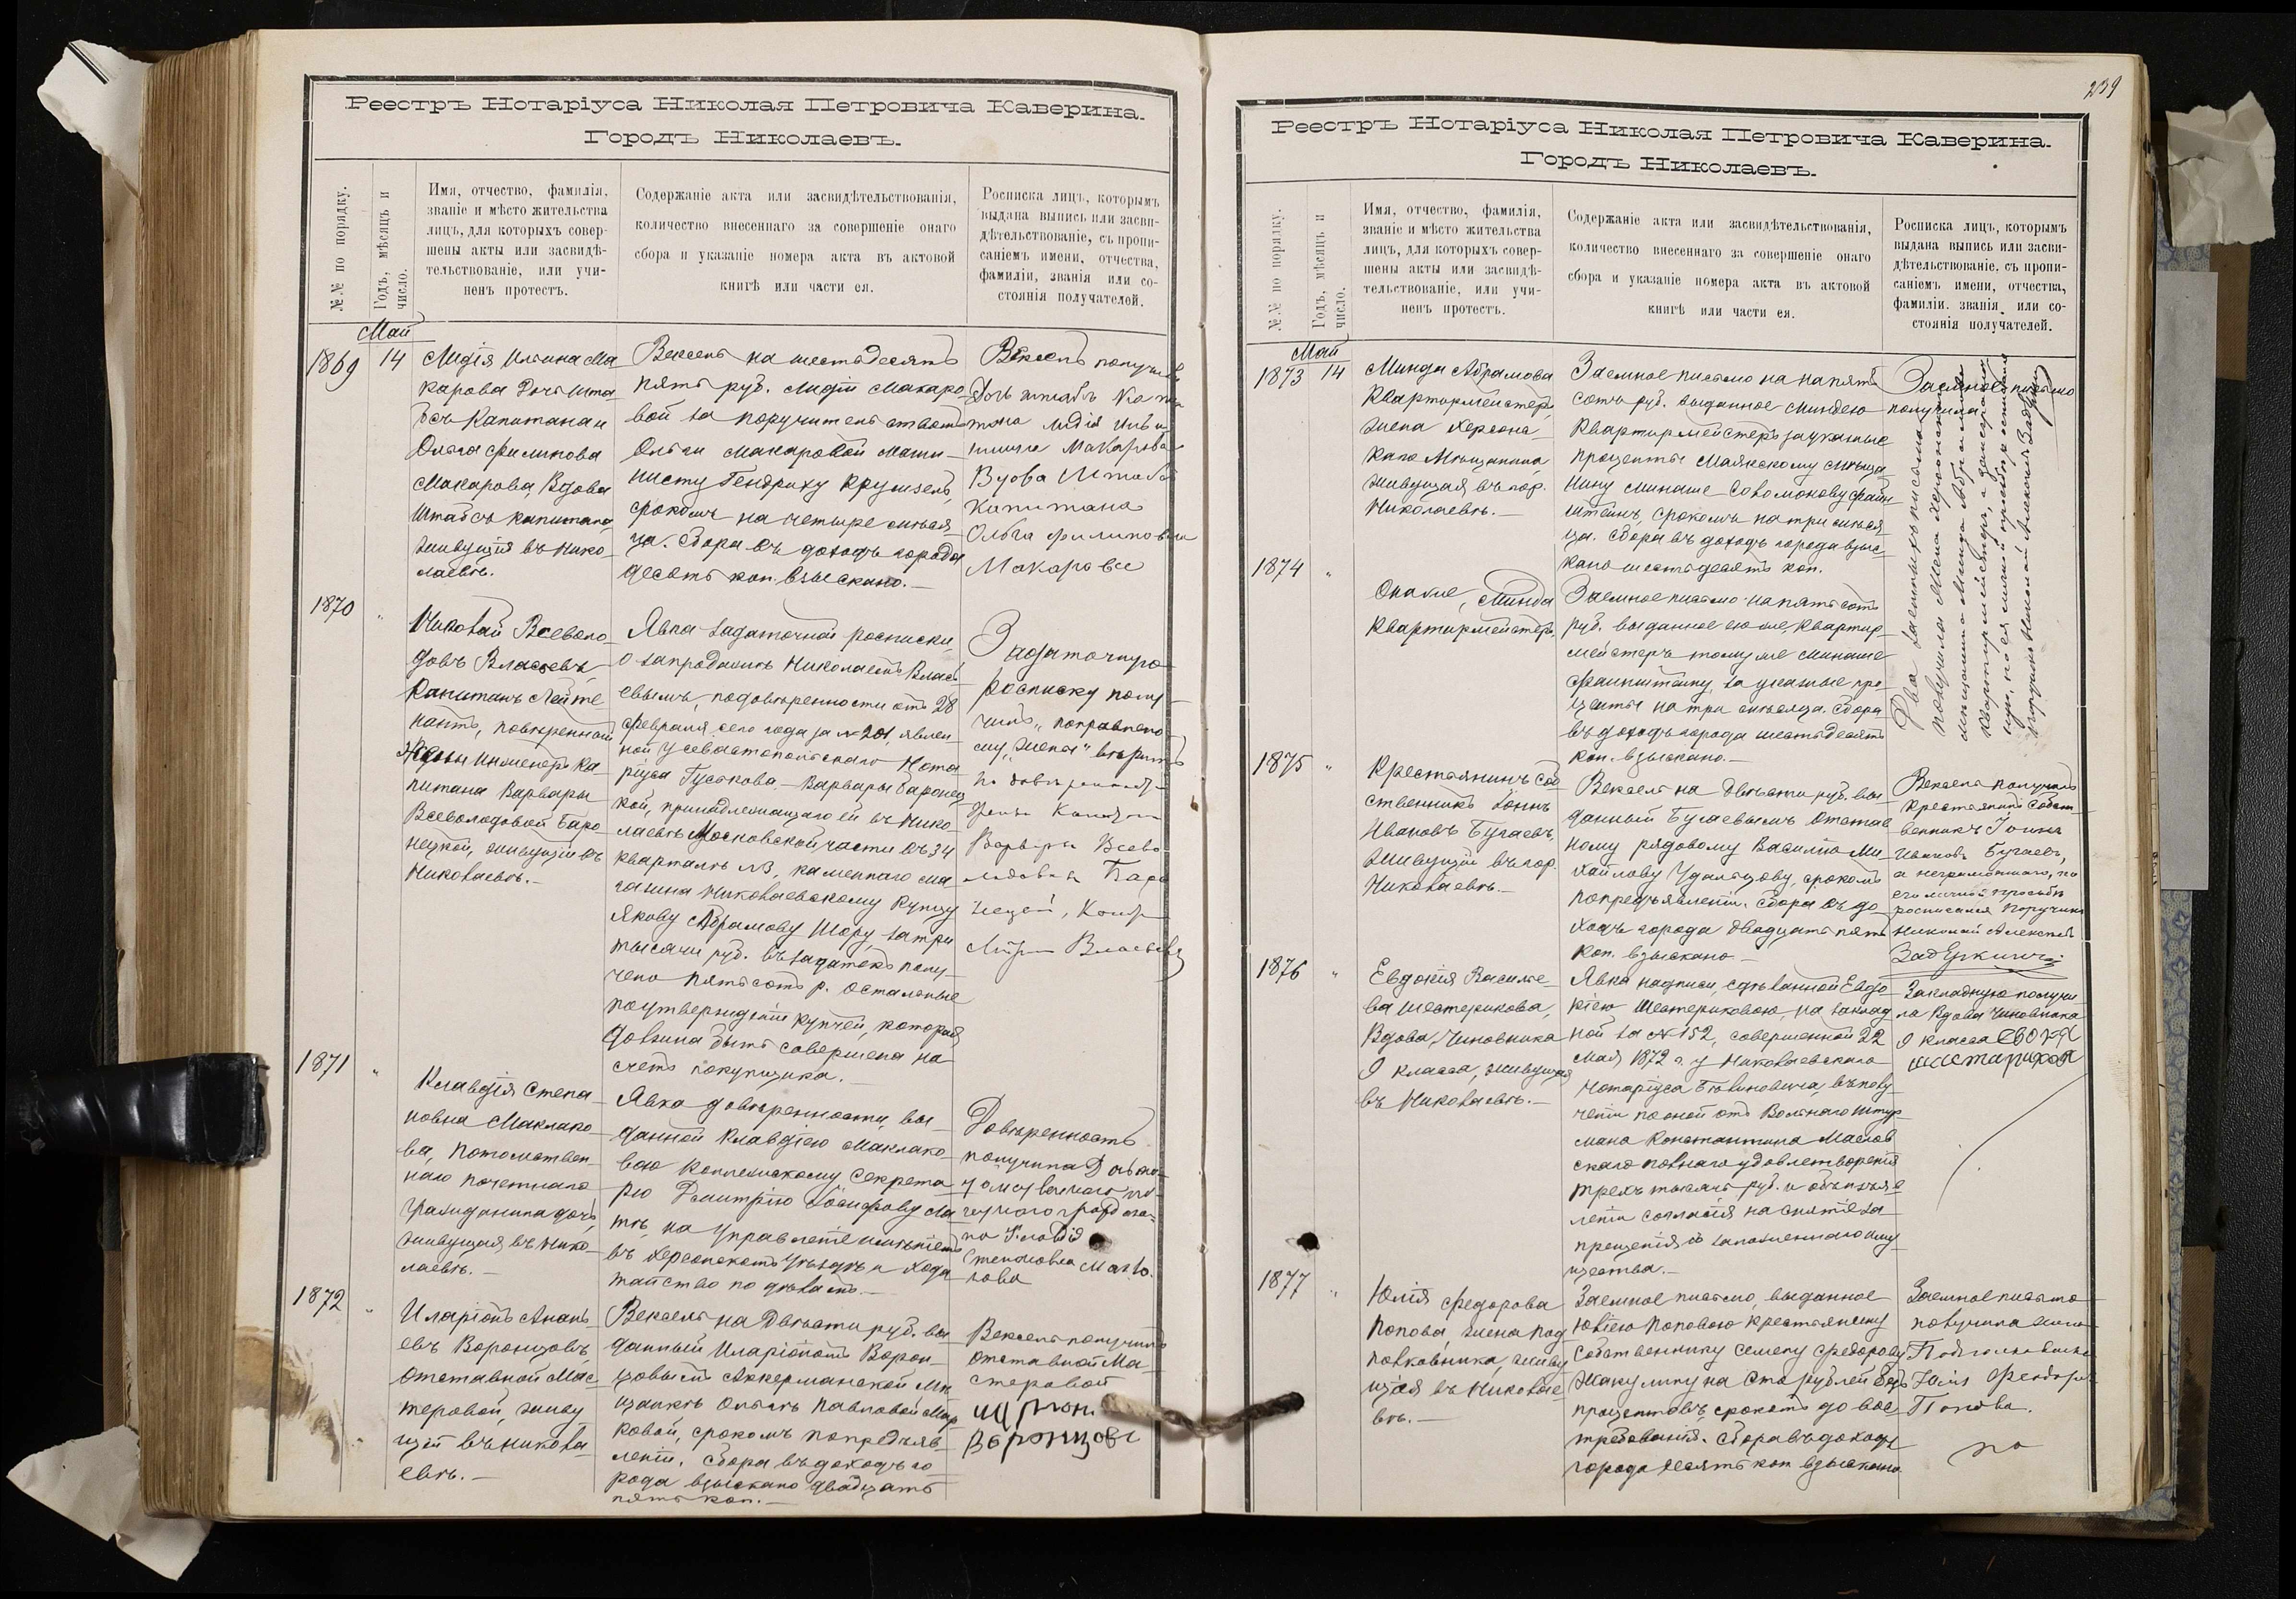 Реестръ Нотаріуса Николая Петровича Каверина.
Городъ Николаевъ.
№№ по порядку.
Годъ, мѣсяцъ и число.
Имя, отчество, фамилія,
званіе и мѣсто жительства
лицъ, для которыхъ совер-
шены акты или засвидѣ-
тельствованіе, или учи-
ненъ протестъ.
Содержаніе акта или засвидѣтельствованія,
количество внесеннаго за совершеніе онаго
сбора и указаніе номера акта въ актовой
книгѣ или части ея.
Росписка лицъ, которымъ
выдана выпись или засви-
дѣтельствованіе, съ пропи-
саніемъ имени, отчества,
фамиліи, званія или со-
стоянія получателей.
Май
1869
14
Лидія Ильина Ма
карова Дочь Шта
бсъ Капитана и
Ольга Филипова
Макарова, Вдова
Штабсъ капитана,
живущія въ Нико
лаевѣ.
Вексель на шестьдесятъ
пять руб. Лидіи Макаро
вой за поручительствомъ
Ольги Макаровой Маши-
нисту Гендриху Крушель,
срокомъ на четыре мѣся
ца. Сбора въ доходъ города
десять коп. взыскано.-
Вексель получили
Дочь штабсъ Капи
тана Лидія Ильи
нишна Макарова
Вдова Штабсъ
Капитана
Ольга Филиповна
Макарова
1870
"
Николай Всеволо
довъ Власьевъ,
Капитанъ Лейте
нантъ, повѣренный
Жены Инженеръ Ка-
питана Варвары
Всеволодовой Баро
нецкой, живущій въ
Николаевѣ.-
Явка задаточной росписки,
о запродажѣ Николаемъ Влась
евымъ, по довѣренности отъ 28
февраля сего года за № 201, явлен
ной у Севастопольскаго Нота
ріуса Гуськова,- Варвары Баронец
кой, принадлежащаго ей въ Нико
лаевѣ Московской части въ 34
кварталѣ № 3, каменнаго ма
газина Николаевскому Купцу
Якову Абрамову Шору, за три
тысячи руб. въ задатокъ полу-
чено пятьсотъ р. остальные
по утвержденіи купчей, которая
должна быть совершена на
счетъ покупщика.-
Задаточную
росписку полу-
чилъ, поправлено
му "Жены" вѣрить
по довѣренности
Жены Капитана
Варвары Всево
лодовны Баро
нецкой, Капит
Лейтен Власьевъ
1871
"
Клавдія Степа
новна Маклако-
ва, Потомствен-
наго почетнаго
гражданина дочь,
живущая въ Нико-
лаевѣ.-
Явка довѣренности, вы-
данной Клавдіею Маклако-
вою Коллежскому Секрета-
рю Дмитрію Іосифову Ла
тѣ, на управленіе имѣніемъ
въ Херсонскомъ Уѣздѣ и хода
тайство по дѣламъ.-
Довѣренность
получила Дочь по-
томственного по-
четного граждани-
на Клавдія
Степановна Макла-
кова
1872
"
Иларіонъ Анань
евъ Воронцовъ,
Отставной Мас-
теровой, живу
щій въ Никола
евѣ.-
Вексель на Двѣсти руб. вы
данный Иларіономъ Ворон-
цовымъ Аккерманской Мѣ
щанкѣ Ольгѣ Павловой Мар
ковой, срокомъ по предъяв-
леніи. Сбора въ доходъ го
рода взыскано двадцать
пять коп.-
Вексель получилъ
Отставной Ма-
стеровой
Воронцовъ
239
Реестръ Нотаріуса Николая Петровича Каверина.
Городъ Николаевъ.
№№ по порядку.
Годъ, мѣсяцъ и число.
Имя, отчество, фамилія,
званіе и мѣсто жительства
лицъ, для которыхъ совер-
шены акты или засвидѣ-
тельствованіе, или учи-
ненъ протестъ.
Содержаніе акта или засвидѣтельствованія,
количество внесеннаго за совершеніе онаго
сбора и указаніе номера акта въ актовой
книгѣ или части ея.
Росписка лицъ, которымъ
выдана выпись или засви-
дѣтельствованіе, съ пропи-
саніемъ имени, отчества,
фамиліи, званія или со-
стоянія получателей.
Май
1873
14
Минда Абрамова
Квартирмейстеръ,
жена Херсона-
каго Мѣщанина,
живущая въ гор.
Николаевѣ.-
Заемное письмо на на пять
сотъ руб. выданное Миндею
Квартирмейстеръ за указные
проценты Маякскому мѣща
нину Минаше Соломонову Файн
штейнъ, срокомъ на три мѣся
ца. Сбора въ доходъ города взыс-
кано шестьдесятъ коп.
Заемное письмо
получила
Два заемныхъ письма
получила Жена Херсонскаго
мѣщанина Минда Абрамова
Квартирмейстеръ, а
ной, по ея личной просьбѣ
поручикъ Николай Алексѣевъ
1874
"
Она же, Минда
Квартирмейстеръ.
Заемное письмо на пятьсотъ
руб. выданное ею же, Квартир-
мейстеръ тому же Минаше
Файнштейну, за указные про-
центы на три мѣсяца. Сбора
въ доходъ города шестьдесятъ
коп. взыскано.-
1875
"
Крестьянинъ Соб
ственникъ Іоннъ
Ивановъ Бугаевъ,
живущій въ гор.
Николаевѣ.-
Вексель на Двѣсти руб. вы-
данный Бугаевымъ Отстав
ному рядовому Василію Ми-
хайлову Удальцову, срокомъ
по предъявленіи. Сбора въ до
ходъ города двадцать пять
коп. взыскано.-
Вексель получилъ
Крестьянинъ Собст-
венникъ Іоннъ
Ивановъ Бугаевъ,
а неграмотнаго, по
его личной просьбѣ
росписался Поручикъ
Николай Алексѣевъ
1876
"
Евдокія Василье-
ва Шестерикова,
Вдова Чиновника
9 класса, живущая
въ Николаевѣ.-
Явка надписи, сдѣланной Евдо
кіею Шестериковою, на заклад
ной за № 152, совершенной 22
Мая 1872 г. у Николаевскаго
Нотаріуса Бѣлиновича, въ полу
ченіи полной отъ Вольнаго Штур
мана Константина Маслов
скаго полнаго удовлетворенія
трехъ тысячъ руб. и объ изъяв
леніи согласія на снятіе за
прещенія съ заложеннаго иму
щества.-
Закладную получи
ла Вдова Чиновника
9 класса
1877
"
Юлія Федорова
Попова, жена Под
полковника, живу
щая въ Николае
вѣ.-
Заемное письмо, выданное
Юліею Поповою крестьянину
Собственнику Семену Федорову
Жакулину на Сто рублей безъ
процентовъ, срокомъ до вос-
требованія. Сбора въ доходъ
города десять коп. взыскано.
Заемное письмо
получила жена
Подполковника
Юлія Федоров
Попова.